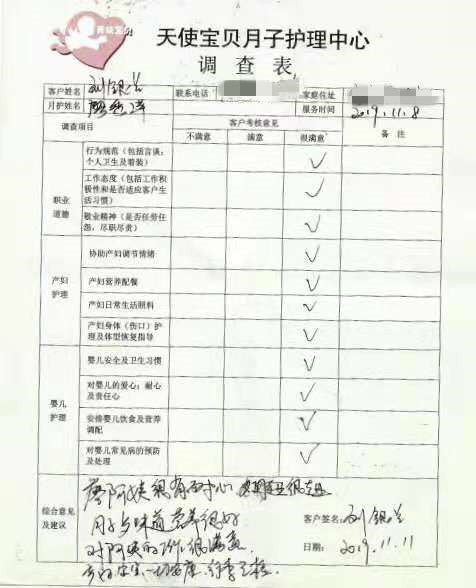 天使宝贝
天使宝贝月子护理中心
调查表
客户姓名 刘银兰 联系电话 家庭住址
月护姓名 服务时间 2019.11.8
调查项目 客户考核意见 备注
不满意 满意 很满意
职业道德
行为规范（包括言谈：个人卫生及着装） ✓
工作态度（包括工作积极性和是否适应客户生活习惯） ✓
敬业精神（是否任劳任怨，尽职尽责） ✓
产妇护理
协助产妇调节情绪 ✓
产妇营养配餐 ✓
产妇日常生活照料 ✓
产妇身体（伤口）护理及体型恢复指导 ✓
婴儿护理
婴儿安全及卫生习惯 ✓
对婴儿的爱心；耐心及责任心 ✓
安排婴儿饮食及营养调配 ✓
对婴儿常见病的预防及处理 ✓
综合意见及建议
阿姨很有耐心
月子 味道 营养很好
对阿姨的工作很满意
客户签名：刘银兰
日期：2019.11.11